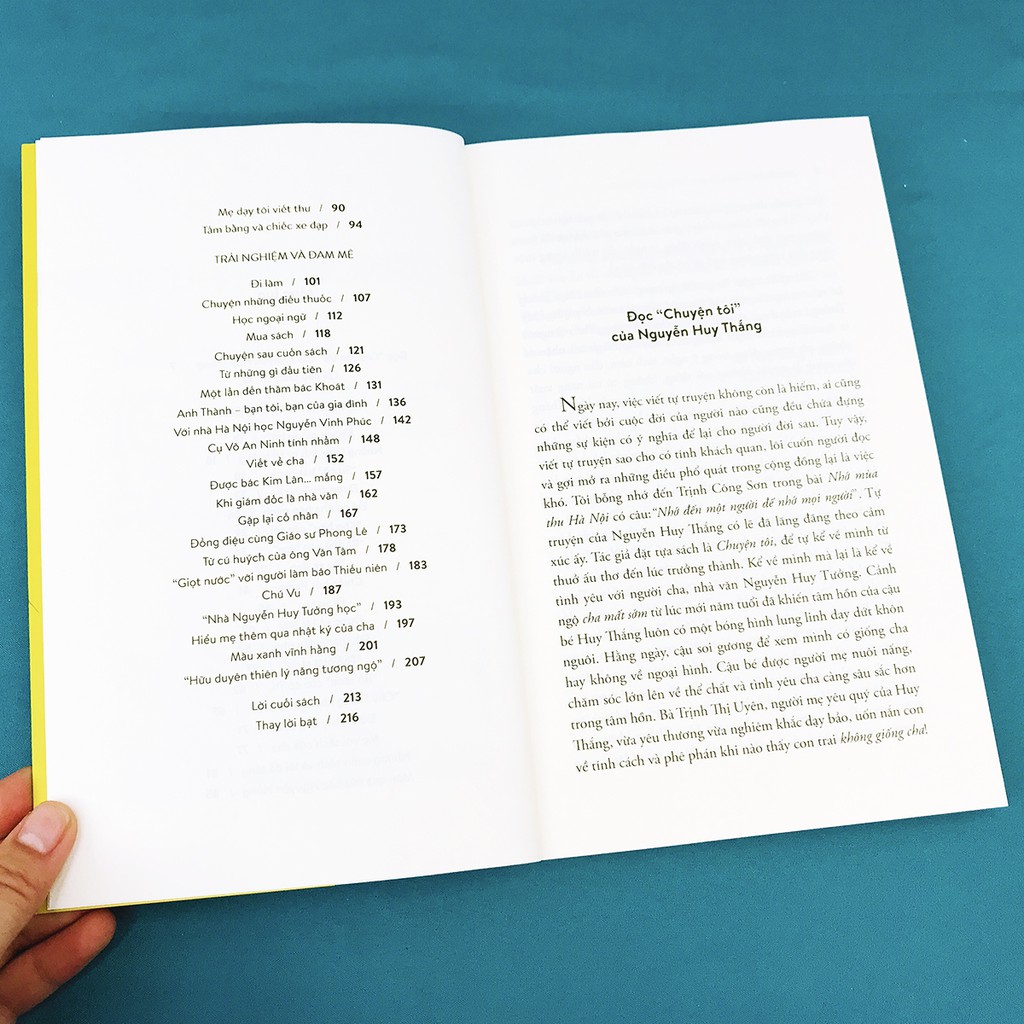 Mẹ dạy tôi viết thư / 90
Tấm bằng và chiếc xe đạp / 94
TRẢI NGHIỆM VÀ ĐAM MÊ
Đi làm / 101
Chuyện những điếu thuốc / 107
Học ngoại ngữ / 112
Mua sách / 118
Chuyện sau cuốn sách / 121
Từ những gì đầu tiên / 126
Một lần đến thăm bác Khoát / 131
Anh Thành – bạn tôi, bạn của gia đình / 136
Với nhà Hà Nội học Nguyễn Vinh Phúc / 142
Cụ Võ An Ninh tính nhẩm / 148
Viết về cha / 152
Được bác Kim Lân... mắng / 157
Khi giám đốc là nhà văn / 162
Gặp lại cố nhân / 167
Đồng điệu cùng Giáo sư Phong Lê / 173
Từ cú huých của ông Văn Tâm / 178
“Giọt nước” với người làm báo Thiếu niên / 183
Chú Vu / 187
“Nhà Nguyễn Huy Tưởng học” / 193
Hiểu mẹ thêm qua nhật ký của cha / 197
Màu xanh vĩnh hằng / 201
“Hữu duyên thiên lý năng tương ngộ” / 207
Lời cuối sách / 213
Thay lời bạt / 216
Đọc “Chuyện tôi”
của Nguyễn Huy Thắng
Ngày nay, việc viết tự truyện không còn là hiếm, ai cũng
có thể viết bởi cuộc đời của người nào cũng đều chứa đựng
những sự kiện có ý nghĩa để lại cho người đời sau. Tuy vậy,
viết tự truyện sao cho có tính khách quan, lôi cuốn người đọc
và gợi mở ra những điều phổ quát trong cộng đồng lại là việc
khó. Tôi bỗng nhớ đến Trịnh Công Sơn trong bài Nhớ mùa
thu Hà Nội có câu:“Nhớ đến một người để nhớ mọi người”. Tự
truyện của Nguyễn Huy Thắng có lẽ đã lãng đãng theo cảm
xúc ấy. Tác giả đặt tựa sách là Chuyện tôi, để tự kể về mình từ
thuở ấu thơ đến lúc trưởng thành. Kể về mình mà lại là kể về
tình yêu với người cha, nhà văn Nguyễn Huy Tưởng. Cảnh
ngộ cha mất sớm từ lúc mới năm tuổi đã khiến tâm hồn của cậu
bé Huy Thắng luôn có một bóng hình lung linh day dứt khôn
nguôi. Hằng ngày, cậu soi gương để xem mình có giống cha
hay không về ngoại hình. Cậu bé được người mẹ nuôi nấng,
chăm sóc lớn lên về thể chất và tình yêu cha càng sâu sắc hơn
trong tâm hồn. Bà Trịnh Thị Uyên, người mẹ yêu quý của Huy
Thắng, vừa yêu thương vừa nghiêm khắc dạy bảo, uốn nắn con
về tính cách và phê phán khi nào thấy con trai không giống cha!